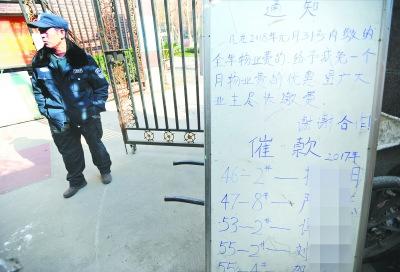 通知
凡在2018年元月31号内缴纳
全年物业费的，给予减免一个
月物业费的优惠，望广大
业主尽快缴费。
谢谢合
催款 2017年
46-2#
47-8#
53-2#
55-2#刘
55-4#贺